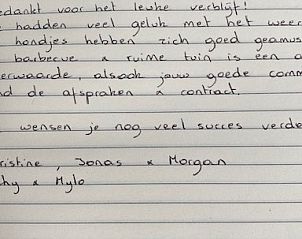 edankt voor het leuke verblijf!
hadden veel geluk met het weer
hondjes hebben zich goed geamus
barbecue & ruime tuin is een a
erwaarde, alsook jouw goede comm
nd de afspraken & contract.
wensen je nog veel succes verde
ristine, Jonas & Morgan
hy & Mylo